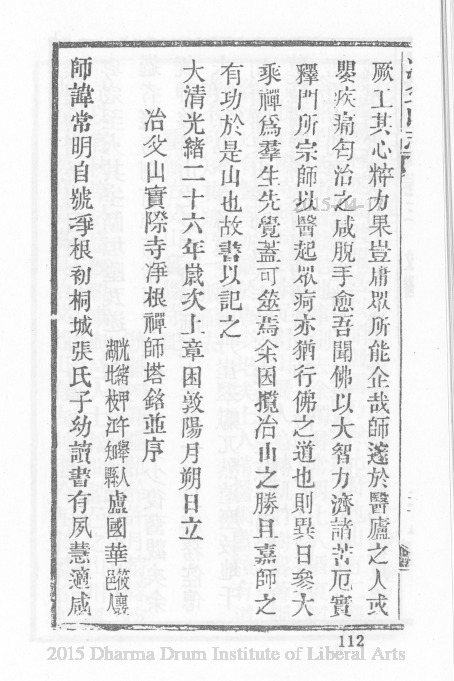 厥工其心粹力果豈庸眾所能企哉師邃於醫廬之人或
嬰疾痛匄治之咸脫手愈吾聞佛以大智力濟諸苦厄實
釋門所宗師以醫起眾疴亦猶行佛之道也則異日參大
乘禪爲羣生先覺蓋可筮焉余因攬冶山之勝且嘉師之
有功於是山也故書以記之
大清光緒二十六年歲次上章困敦陽月朔日立
冶父山實際寺淨根禪師塔銘並序
光緒甲午舉人
湖北枝江知縣盧國華筱襄邑人
師諱常明自號淨根初桐城張氏子幼讀書有夙慧適咸
112
2015 Dharma Drum Institute of Liberal Arts